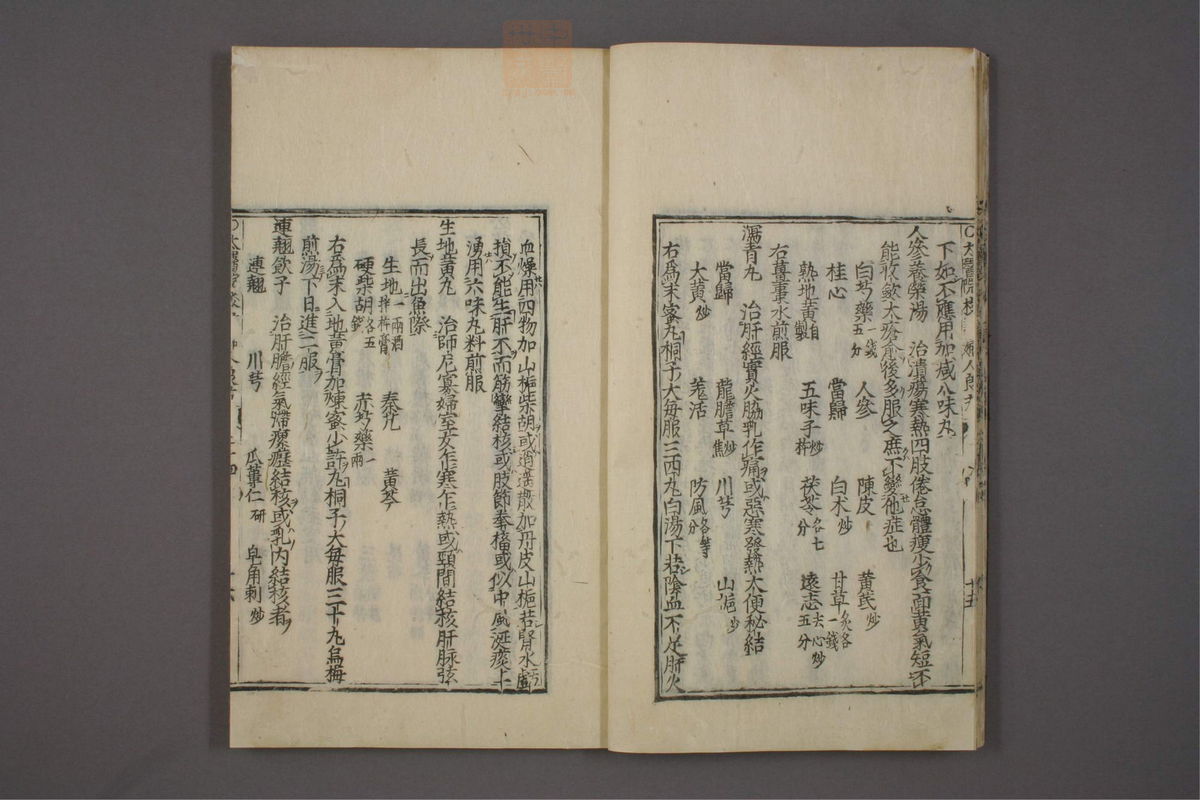 下如不應用加減八味丸
人參養榮湯 治潰瘍寒熱四肢倦怠體瘦少食面黃氣短不
能收歛大瘡愈後多服之庶不變他症也
白芍藥一錢五分 人參 陳皮 黃芪炒
桂心 當歸 白朮炒 甘草炙各一錢
熟地黃自製 五味子炒杵 茯苓各七分 遠志去心炒五分
右薑棗水煎服
瀉青丸 治肝經實火脇乳作痛或惡寒發熱大便秘結
當歸 龍膽草炒焦 川芎 山梔炒
大黃炒 羌活 防風各等分
右爲末蜜丸桐子大每服三四丸白湯下若陰血不足肝火
血燥用四物加山梔柴胡或逍遥散加丹皮山梔若腎水虧
損不能生肝不而筋攣結核或肢節拳搐或似中風涎痰上
湧用六味丸料煎服
生地黃丸 治師尼寡婦室女乍寒乍熱或頸間結核肝脉弦
長而出魚際
生地一兩酒拌杵膏 秦艽 黃芩
硬柴胡各五錢 赤芍藥一兩
右爲末入地黃膏加煉蜜少許丸桐子大每服三十丸烏梅
煎湯下日進二服
連翹飲子 治肝膽經氣滯瘰癧結核或乳內結核者
連翹 川芎 瓜蔞仁研 皂角刺炒